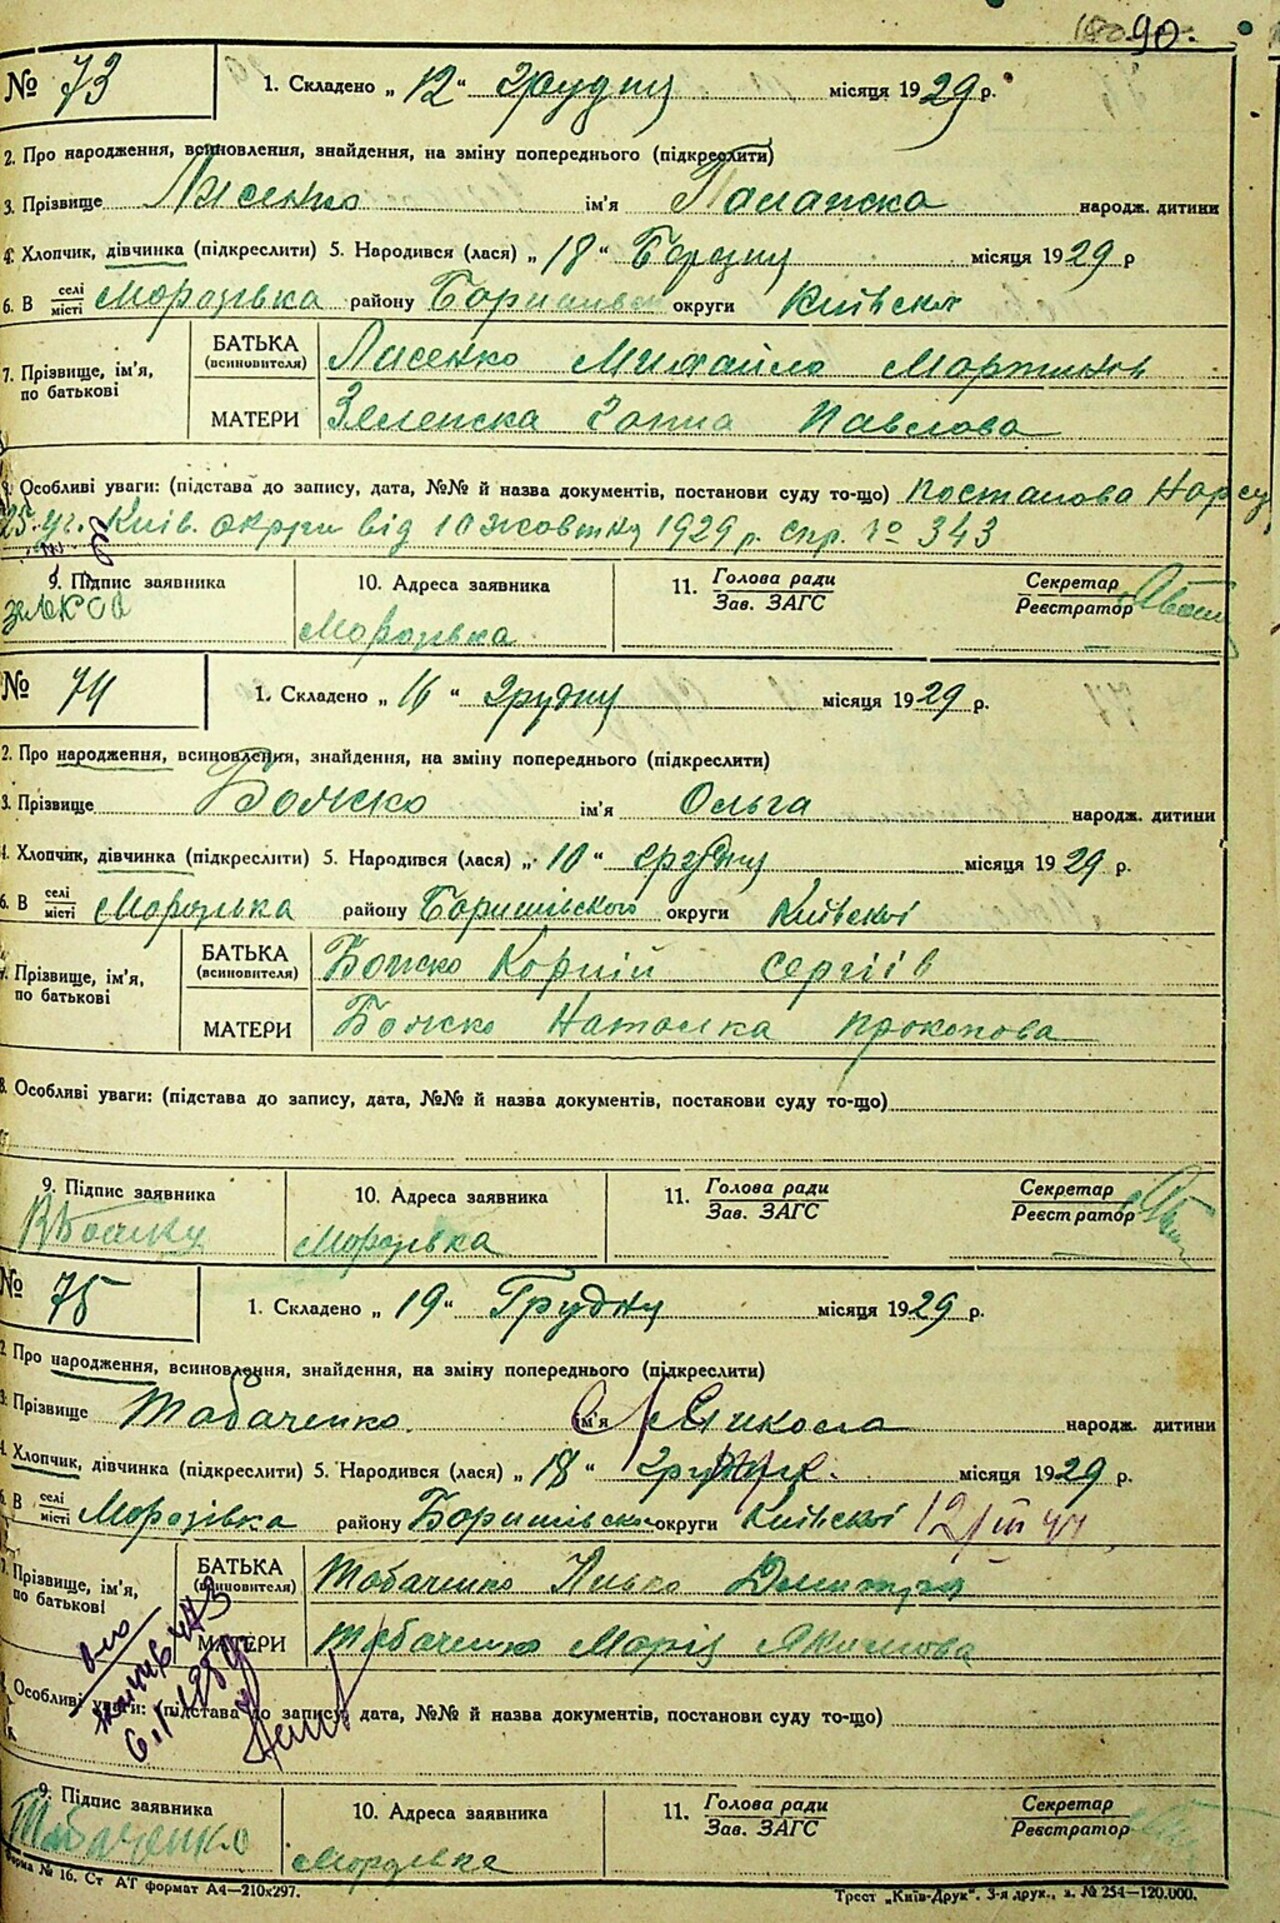 90.
№ 73 1. Складено „12“ Грудня місяця 1929 р.
2. Про народження, всиновлення, знайдення, на зміну попереднього (підкреслити)
3. Прізвище Лисенко ім'я Палажка народж. дитини
4. Хлопчик, дівчинка (підкреслити) 5. Народився (лася) „18“ Березня місяця 1929 р
6. В селі місті Морозівка району округи Київської
7. Прізвище, ім'я, по батькові БАТЬКА (всиновителя) Лисенко Михайло Мартинів
МАТЕРИ Зеленська Ганна Павлова
8. Особливі уваги: (підстава до запису, дата, №№ й назва документів, постанови суду то-що) постанова Нарсу
25 уч. Київ. округи від 10 жовтня 1929 р. спр. № 343
9. Підпис заявника 10. Адреса заявника 11. Голова ради Зав. ЗАГС Секретар Реєстратор
Морозівка
№ 74 1. Складено „16“ Грудня місяця 1929 р.
2. Про народження, всиновлення, знайдення, на зміну попереднього (підкреслити)
3. Прізвище Божко ім'я Ольга народж. дитини
4. Хлопчик, дівчинка (підкреслити) 5. Народився (лася) „10“ грудня місяця 1929 р.
6. В селі місті Морозівка району Баришівського округи Київської
7. Прізвище, ім'я, по батькові БАТЬКА (всиновителя) Божко Корній Сергіїв
МАТЕРИ Божко Наталка Прокопова
8. Особливі уваги: (підстава до запису, дата, №№ й назва документів, постанови суду то-що)
9. Підпис заявника 10. Адреса заявника 11. Голова ради Зав. ЗАГС Секретар Реєстратор
Морозівка
№ 75 1. Складено „19“ Грудня місяця 1929 р.
2. Про народження, всиновлення, знайдення, на зміну попереднього (підкреслити)
3. Прізвище Табаченко ім'я Микола народж. дитини
4. Хлопчик, дівчинка (підкреслити) 5. Народився (лася) „18“ місяця 1929 р.
6. В селі місті Морозівка району округи Київської 12/III 44
7. Прізвище, ім'я, по батькові БАТЬКА (всиновителя) Табаченко
МАТЕРИ Табаченко Марія Якимова
8. Особливі уваги: (підстава до запису, дата, №№ й назва документів, постанови суду то-що)
9. Підпис заявника 10. Адреса заявника 11. Голова ради Зав. ЗАГС Секретар Реєстратор
Табаченко Морозівка
Форма № 16. Ст АТ формат А4—210х297. Трест „Київ-Друк“. 3-я друк., з. № 254—120.000.